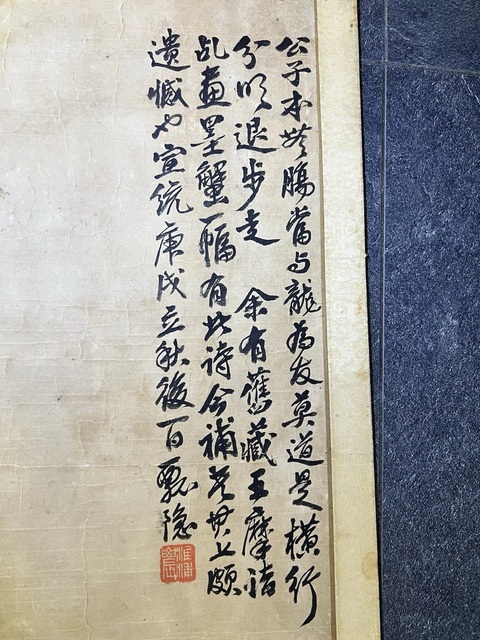 公子本無腸當与龍為友莫道是橫行
分明退步走 余有舊藏王摩詰
乩畫墨蟹一幅有此诗今補其上頗
遺憾也宣統庚戌立秋後一日瓢隱